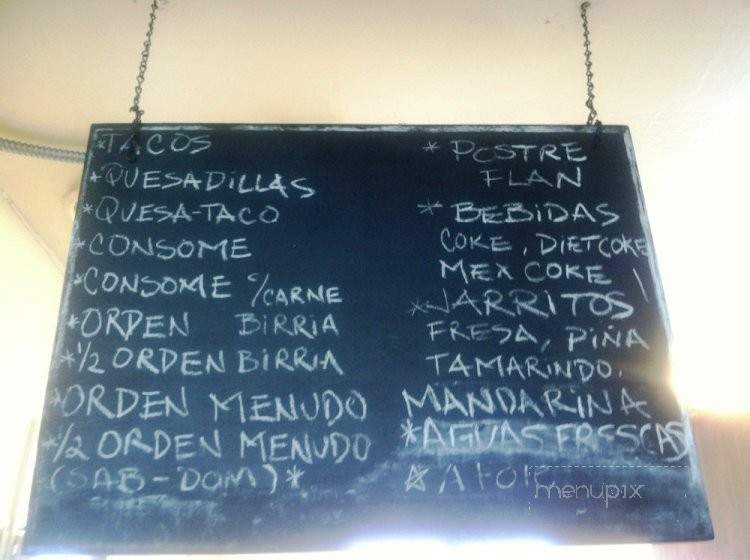 *TACOS
*QUESADILLAS
*QUESA-TACO
*CONSOME
*CONSOME C/CARNE
*ORDEN BIRRIA
*1/2 ORDEN BIRRIA
*ORDEN MENUDO
*1/2 ORDEN MENUDO
(SAB-DOM)*
* POSTRE
FLAN
* BEBIDAS
COKE, DIET COKE
MEX COKE
*JARRITOS
FRESA, PIÑA
TAMARINDO,
MANDARINA
*AGUAS FRESCAS
menupix